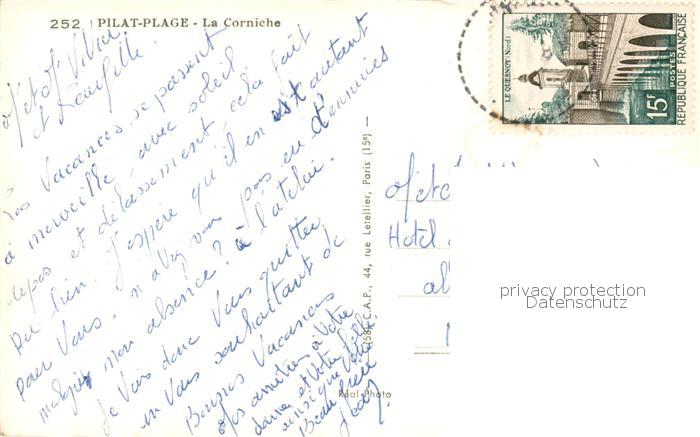 252 PILAT-PLAGE - La Corniche
et famille.
Vacances se passent
à merveille avec soleil,
repos et délassement, cela fait
du bien. J'espère qu'il en est autant
pour Vous. n'avez vous pas eu d'ennuies
malgré mon absence? à l'atelier.
Je Vais donc Vous quitter
en Vous souhaitant de
Bonnes Vacances
Mes amitiés à Votre
dame et Votre fille
ainsi que Votre
Beau frère
C.A.P., 44, rue Letellier, Paris (15e) —
Réal Photo
LE QUESNOY (Nord)
15F
POSTES
REPUBLIQUE FRANÇAISE
Hotel
privacy protection
Datenschutz